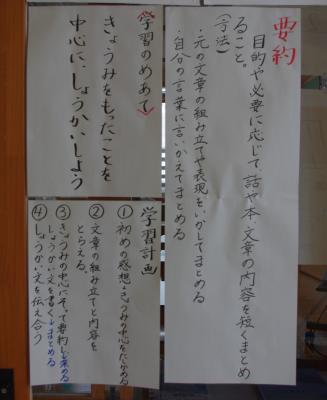 要約
目的や必要に応じて、話や本・文章の内容を短くまとめ
ること。
〈方法〉
・元の文章の組み立てや表現をいかしてまとめる
・自分の言葉に言いかえてまとめる
〈学習のめあて〉
きょうみをもったことを
中心に、しょうかいしよう
学習計画
①初めの感想・きょうみの中心をたしかめる
②文章の組み立てと内容を
とらえる。
③きょうみの中心にそって要約し、
しょうかい文を書く
まとめる
④しょうかい文を伝え合う